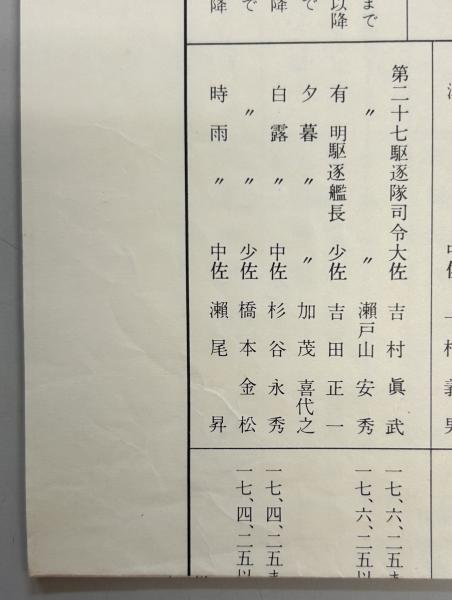 第二十七駆逐隊司令大佐 吉村眞武 一七、六、二五ま
〃 〃 瀨戸山安秀 一七、六、二五以
有明駆逐艦長 少佐 吉田正一
夕暮 〃 〃 加茂喜代之
白露 〃 中佐 杉谷永秀 一七、四、二五ま
〃 〃 少佐 橋本金松 一七、四、二五以
時雨 〃 中佐 瀨尾昇
まで
以降
で
降
で
降